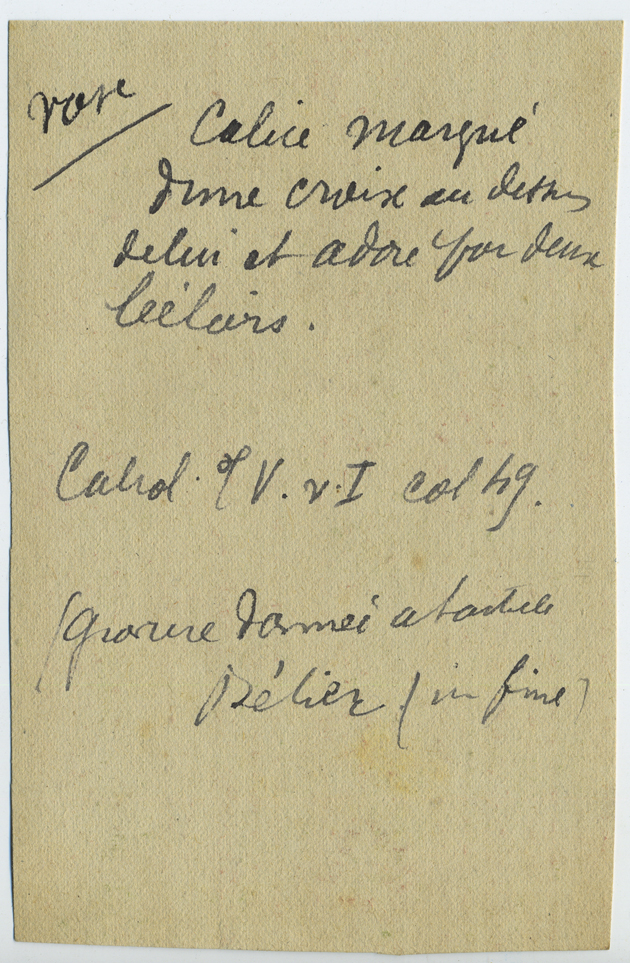 vase
Calice marqué
d'une croix au dessus
de lui et adoré par deux
béliers.
Cabrol. V. v. I col 49.
(gravure donnée a l'article
Bélier (in fine)